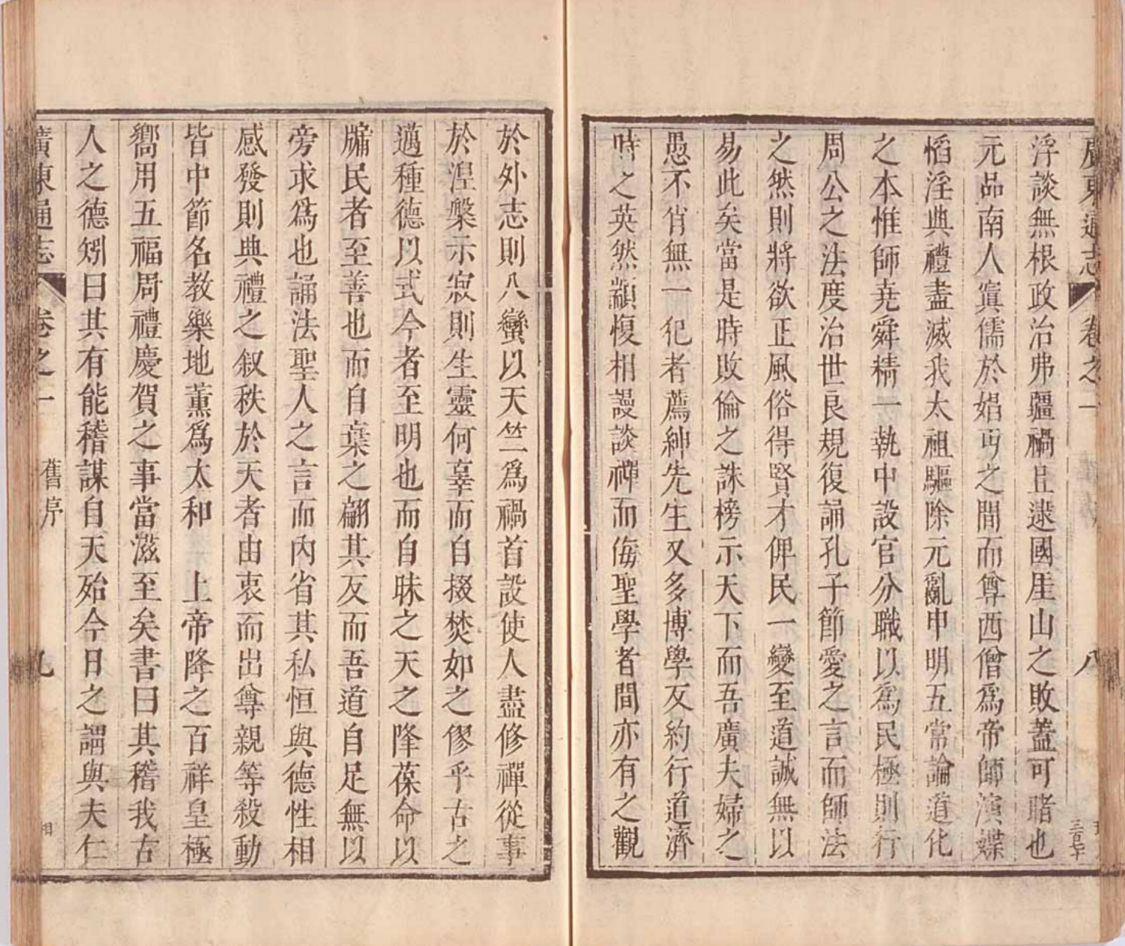 廣東通志 卷之一 八
浮談無根政治弗疆禍且遠國厓山之敗蓋可睹也
元品南人寘儒於娼丐之間而尊西僧爲帝師演媟
慆淫典禮盡滅我太祖驅除元亂申明五常論道化
之本惟師堯舜精一執中設官分職以爲民極則行
周公之法度治世良規復誦孔子節愛之言而師法
之然則將欲正風俗得賢才俾民一變至道誠無以
易此矣當是時敗倫之誅榜示天下而吾廣夫婦之
愚不肖無一犯者薦紳先生又多博學反約行道濟
時之英然顓愎相謾談禪而侮聖學者間亦有之觀
於外志則八蠻以天竺爲禍首設使人盡修禪從事
於涅槃示寂則生靈何辜而自掇焚如之僇乎古之
邁種德以式今者至明也而自昧之天之降葆命以
牖民者至善也而自棄之翩其反而吾道自足無以
旁求爲也誦法聖人之言而內省其私恒與德性相
感發則典禮之叙秩於天者由衷而出尊親等殺動
皆中節名教樂地薰爲太和 上帝降之百祥皇極
嚮用五福周禮慶賀之事當滋至矣書曰其稽我古
人之德矧曰其有能稽謀自天殆今日之謂與夫仁
廣東通志 卷之一 舊序 九